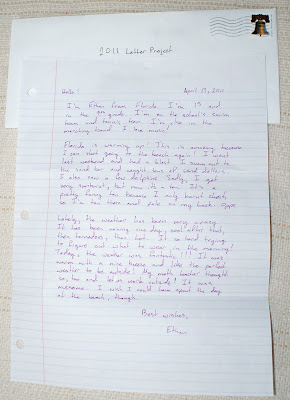 2011 Letter Project
Hello! April 17, 2011
I'm Ethan from Florida. I'm 15 and
in the 9th grade. I'm on the school's swim
team and tennis team. I'm also in the
marching band. I love music!
Florida is warming up! This is amazing because
I can start going to the beach again! I went
last weekend and had a blast. I swam out to
the sand bar and caught tons of sand dollars.
I also saw a few dolphins. Sadly, I got
very sunburnt, but now it's a tan! It's a
pretty funny tan because I only burnt
so I'm tan there and pale on my back.
Lately, the weather has been very crazy.
It has been raining one day, cool after that,
then tornadoes, then hot. It is so hard trying
to figure out what to wear in the morning!
Today, the weather was fantastic!!! It was
warm with a nice breeze and like the perfect
weather to be outside! My math teacher thought
so, too and let us work outside! It was
awesome. I wish I could have spent the day
at the beach, though.
Best wishes,
Ethan